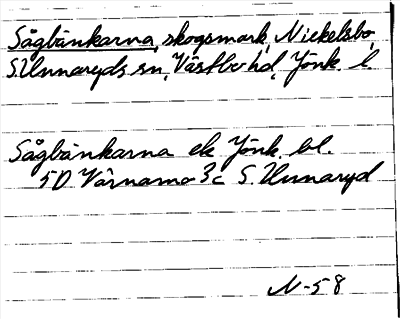 Sågbänkarna, skogsmark, Nickelsbo,
S. Unnaryds sn, Västbo hd, Jönk. l.
Sågbänkarna ek Jönk. bl.
5D Värnamo 3c S. Unnaryd
N-58